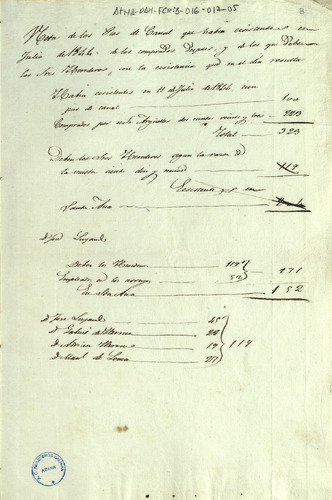 ATHA-DAH-FCHCB-016-012-05
8
Nota de los Pies de Canal que habia existentes en
Julio de 1844. de los comprados despues, y de los que deben
los Sres Herederos, con la existencia que en el dia resulta
Habia existentes en 11 de Julio de 1844. cien
pies de canal 100
Comprados por una de ciento veinte y tres 223
Total 323
Deben los Sres Herederos segun la razon de
la vuelta ciento diez y nueve 119
Existentes en
Santa Ana
Dn José Luyando
Deben los Herederos 119
Empleados en los arroyos 52 } 171
En Sta Ana 152
Dn Jose Luyando 45
Dn Gabriel de Herrera 28
Dn Adrian Herrera 19 } 119
Dn Manl de Lonca 27
ALAVA